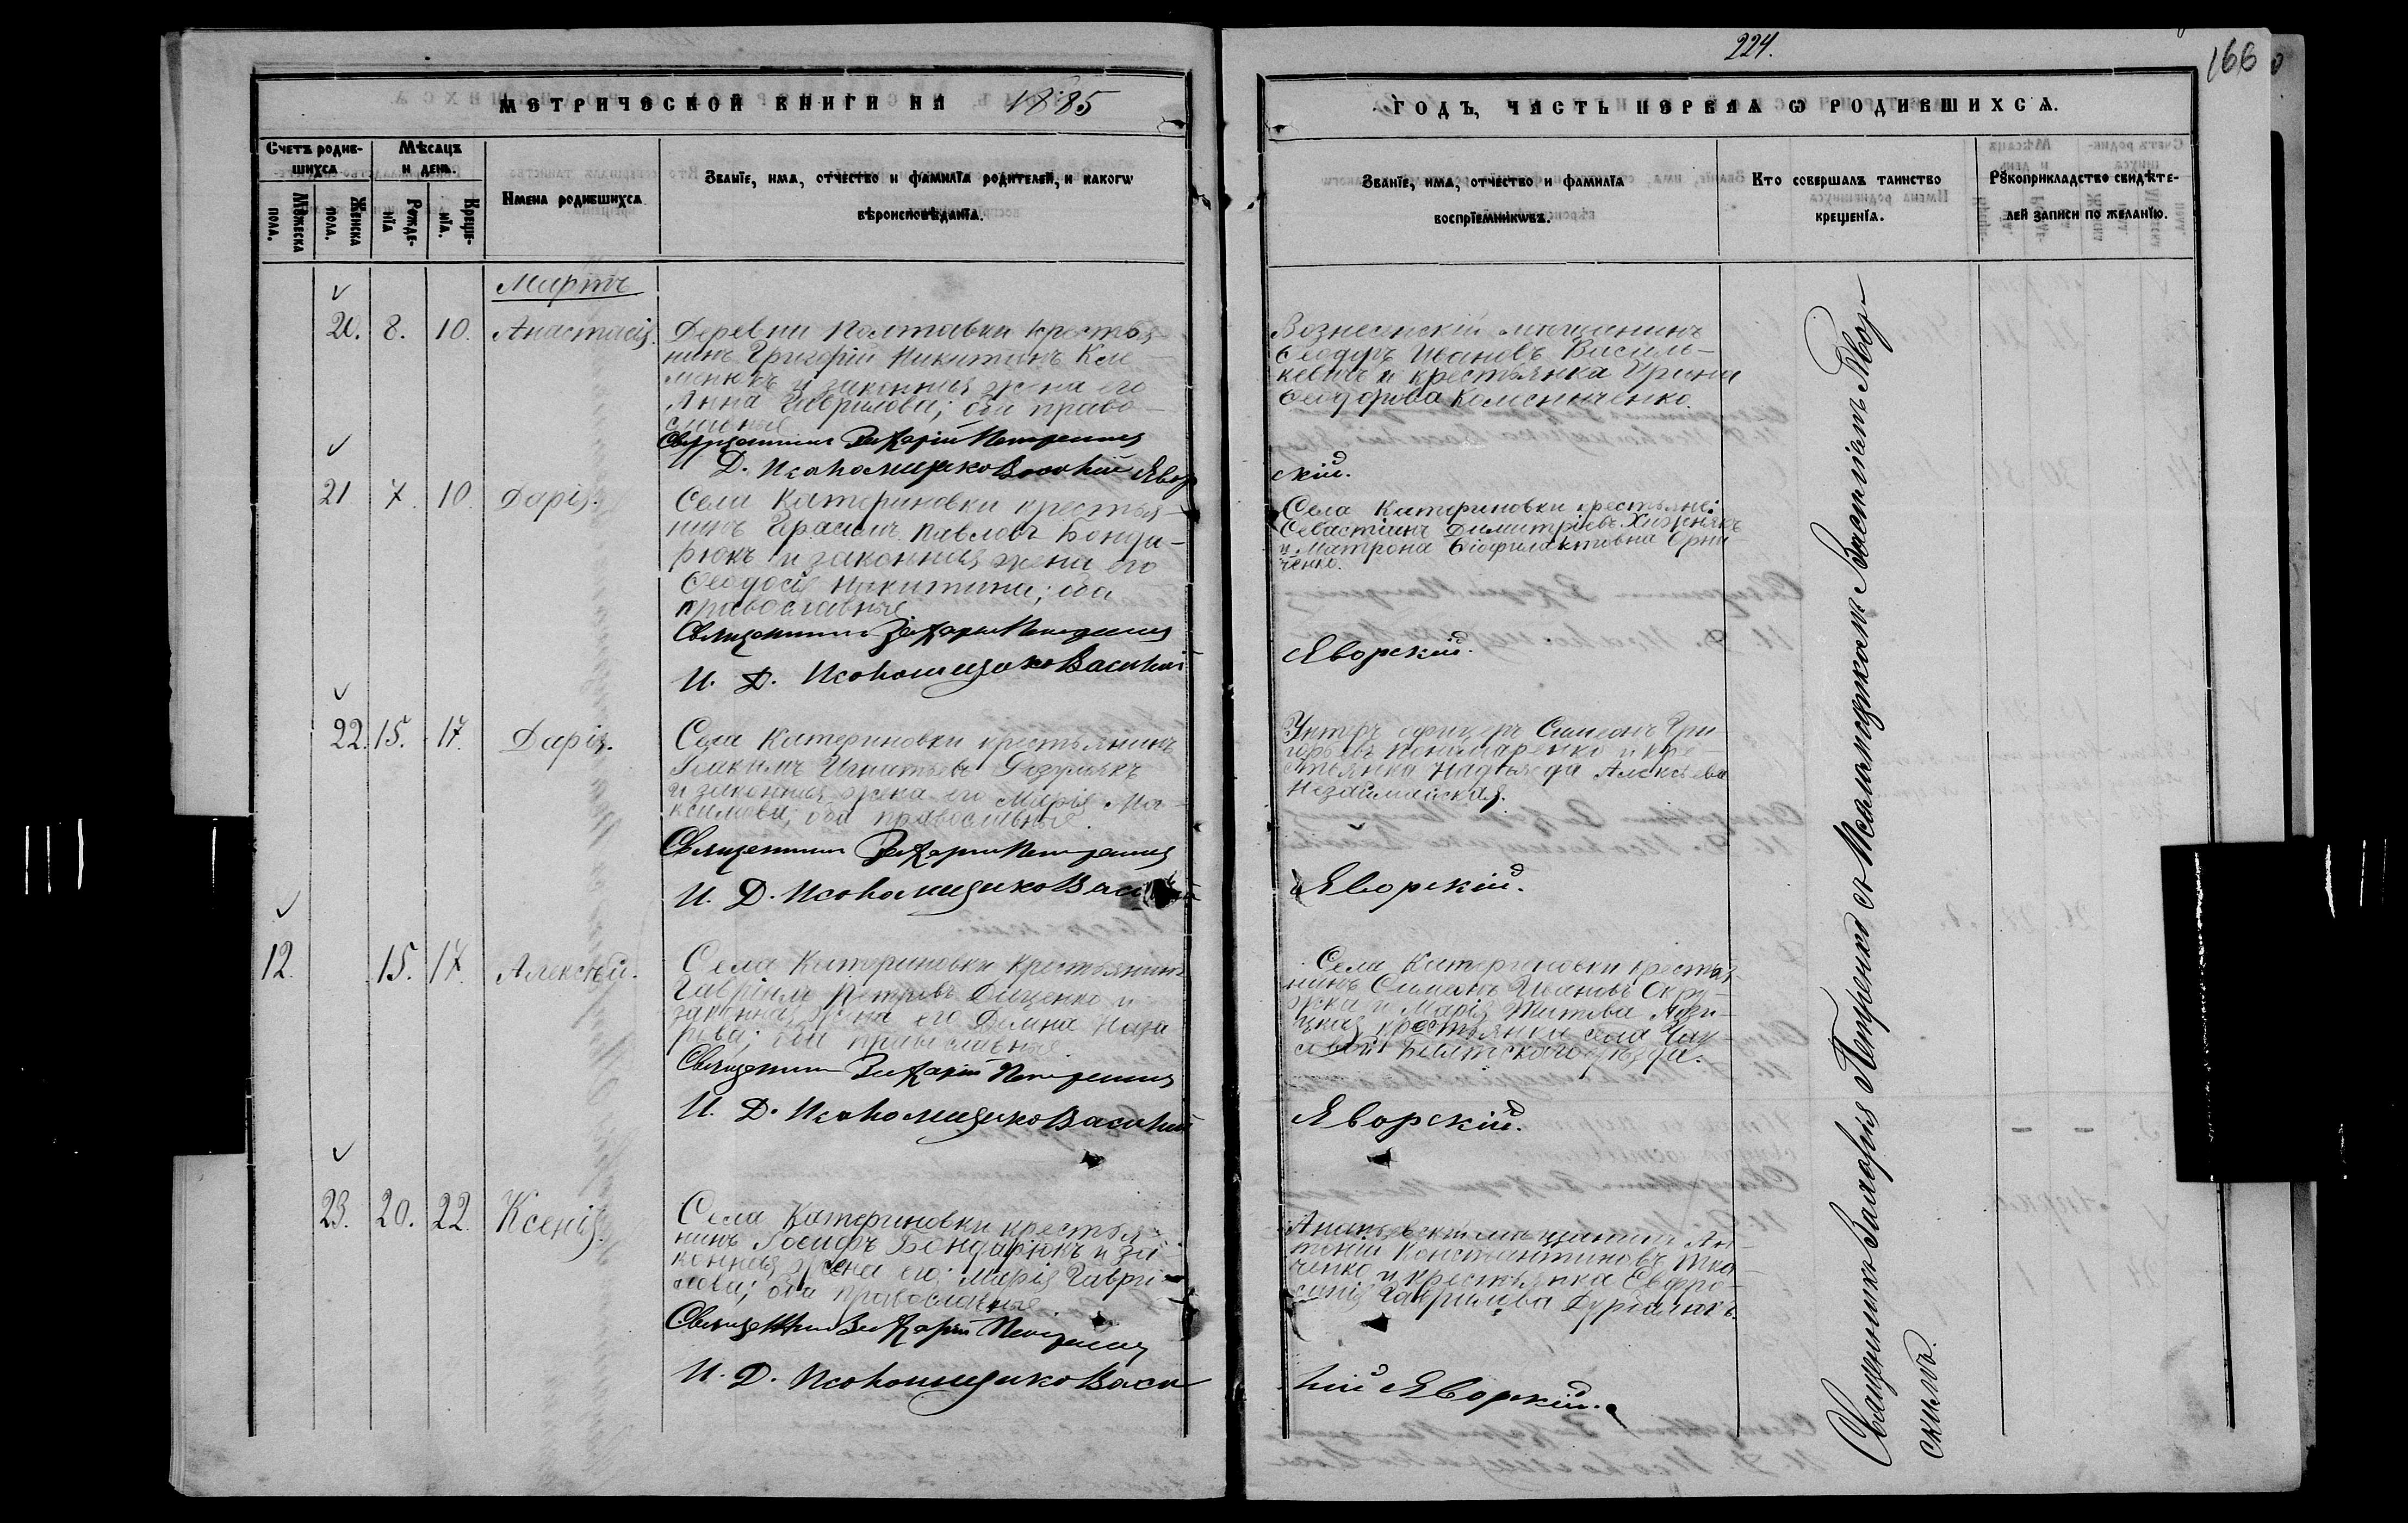 224.
166
МЕТРИЧЕСКОЙ КНИГИ НА 1885
ГОДЪ, ЧАСТЬ ПЕРВАЯ Ѡ РОДИВШИХСЯ.
Счетъ родив-
шихся
Мѣсяцъ
и день.
Мꙋжеска
пола.
Женска
пола.
Рожде-
нїя
Креще-
нїя.
Имена родившихся
Званїе, имя, отчество и фамилїа родителей, и какогѡ
вѣроисповѣданїя.
Званїе, имя, отчество и фамилїа
воспрїемникѡвъ.
Кто совершалъ таинство
крещенїя.
Рꙋкоприкладство свидѣте-
лей записи по желанїю.
Мартъ
20. 8. 10. Анастасія.
Деревни Полтавки крестья-
нинъ Григорій Никитинъ Кле-
менюкъ и законная жена его
Анна Гаврилова; оба право-
славные
Священникъ Захарій Петренко
И. Д. Псаломщика Василій Явор
Вознесенскій мѣщанинъ
Ѳеодоръ Ивановъ Василь-
кевичъ и крестьянка Ирина
Ѳеодорова Колесниченко.
скій.
21 7. 10. Дарія.
Села Катериновки крестья-
нинъ Герасимъ Павловъ Бонда-
рюкъ и законная жена его
Ѳеодосія Никитина; оба
православные
Священникъ Захарій Петренко
И. Д. Псаломщика Василій
Села Катериновки крестьяне:
Севастіанъ Димитріевъ Хижнякъ
и Матрона Ѳеофилактовна
ченко.
Яворскій.
22. 15. 17. Дарія.
Села Катериновки крестьянинъ
Іоакимъ Игнатьевъ
и законная жена его Марія Ма-
ксимова; оба православные.
Священникъ Захарій Петренко
И. Д. Псаломщика Василій
Унтеръ офицеръ Симеонъ Гри
горьевъ Пономаренко и кре-
стьянка Надежда Алексѣева
Незаймайская.
Яворскій.
12. 15. 17 Алексѣй.
Села Катериновки крестьянинъ
Гавріилъ Петровъ Диценко и
законная жена его Домна Наза
рова; оба православные.
Священникъ Захарій Петренко
И. Д. Псаломщика Василій
Села Катериновки крестья-
нинъ Симеонъ Ивановъ Окру-
жка и Марія Титова
цкая крестьянки села
Балтскаго уѣзда.
Яворскій.
23. 20. 22 Ксенія.
Села Катериновки крестья-
нинъ Іосифъ Бондарюкъ и за-
конная жена его Марія Гаври-
лова; оба православные.
Священникъ Захарій Петренко
И. Д. Псаломщика Васи
Ананьевскій мѣщанинъ Ан-
тоній Константиновъ Тка-
ченко и крестьянка Евфро-
синія Гаврилова
лій Яворскій.
Священникъ Захарія Петренко съ Псаломщикомъ Василіемъ Явор-
скимъ.